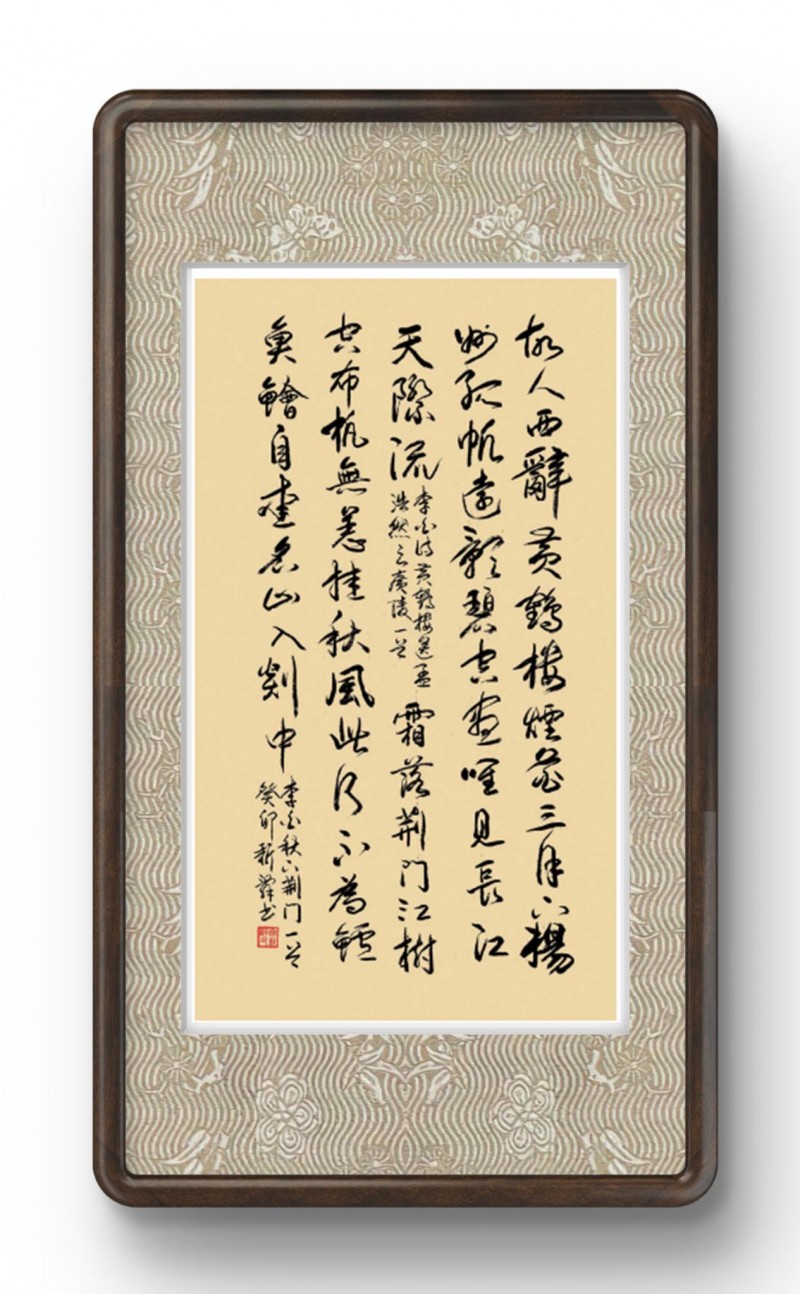 故人西辭黄鶴樓煙花三月下楊
州孤帆遠影碧空盡唯見長江
天際流
李白诗黄鶴樓送孟
浩然之廣陵一首
霜落荆门江樹
空布帆無恙挂秋風此行不為鱸
魚鱠自愛名山入剡中
李白秋下荆门一首
癸卯书